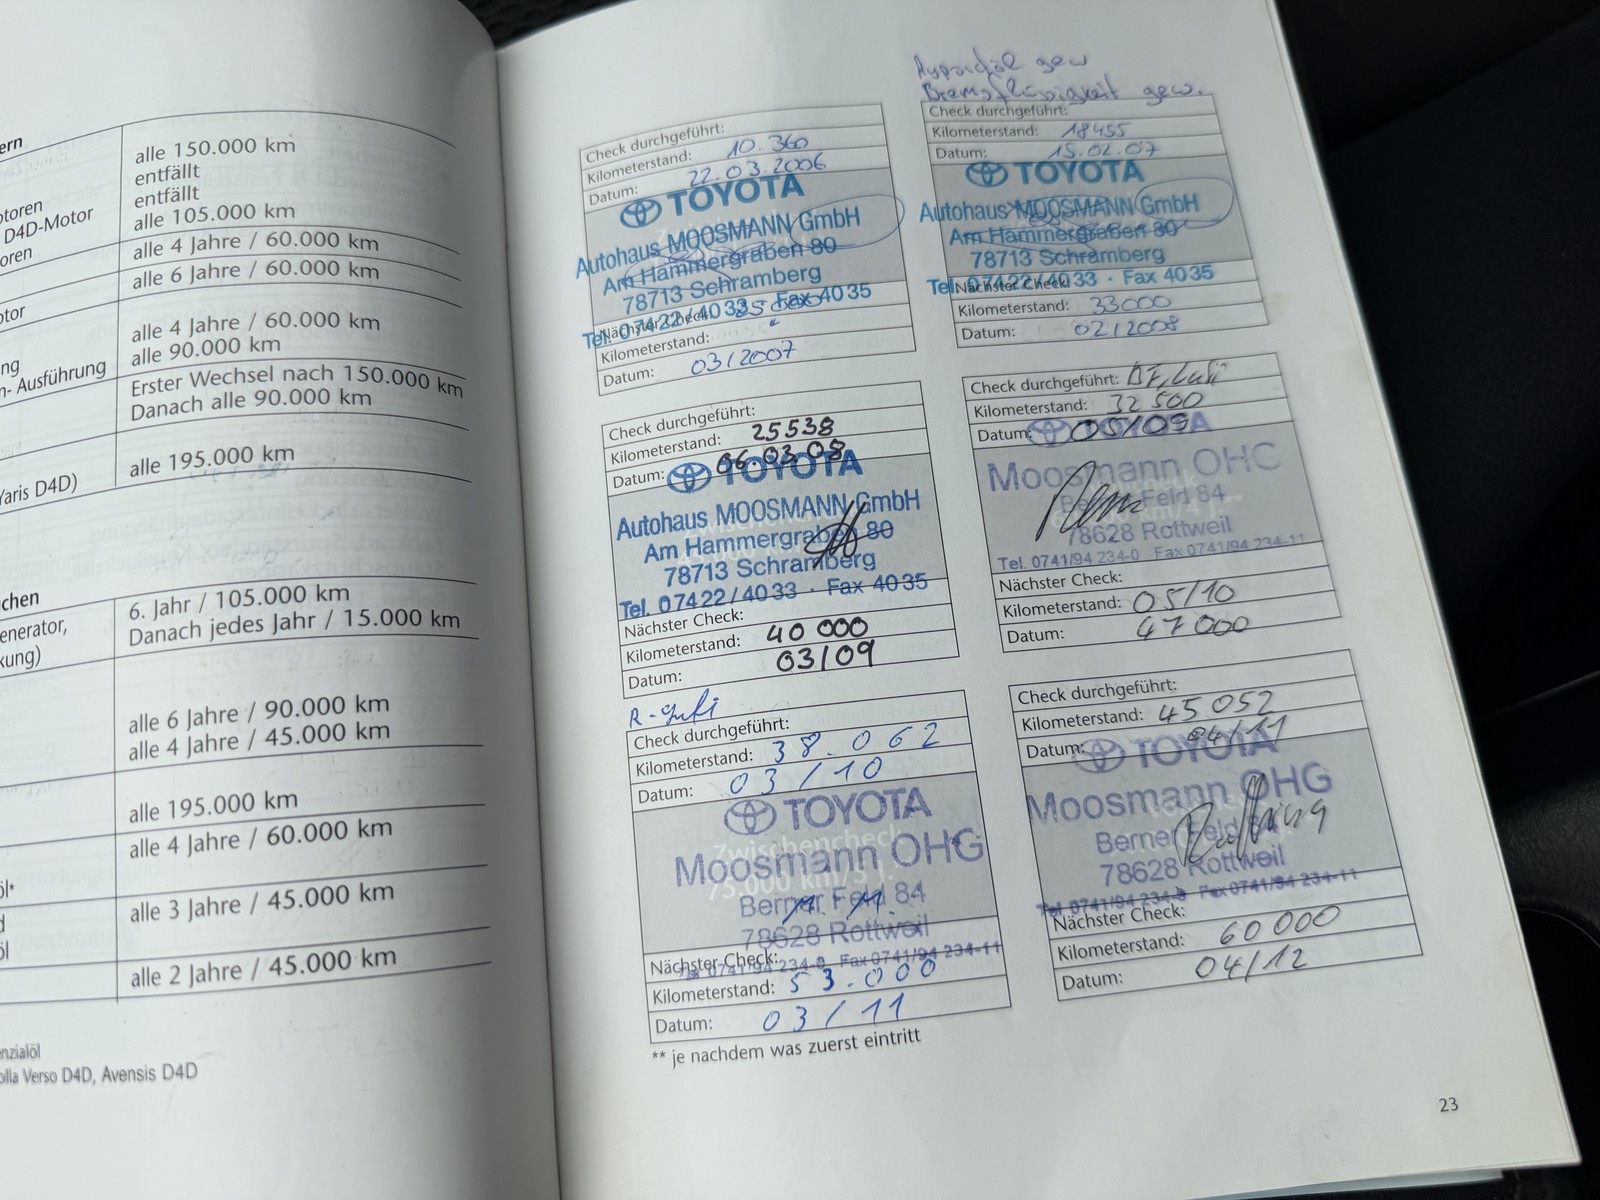 ern
alle 150.000 km
entfällt
entfällt
otoren
D4D-Motor
alle 105.000 km
oren
alle 4 Jahre / 60.000 km
alle 6 Jahre / 60.000 km
otor
alle 4 Jahre / 60.000 km
ng
alle 90.000 km
n- Ausführung
Erster Wechsel nach 150.000 km
Danach alle 90.000 km
Yaris D4D)
alle 195.000 km
chen
6. Jahr / 105.000 km
enerator,
Danach jedes Jahr / 15.000 km
kung)
alle 6 Jahre / 90.000 km
alle 4 Jahre / 45.000 km
alle 195.000 km
alle 4 Jahre / 60.000 km
öl*
alle 3 Jahre / 45.000 km
d
öl
alle 2 Jahre / 45.000 km
enzialöl
olla Verso D4D, Avensis D4D
Check durchgeführt:
Kilometerstand: 10.360
Datum: 22.03.2006
TOYOTA
Autohaus MOOSMANN GmbH
Am Hammergraben 80
78713 Schramberg
Tel. 07422/4033 · Fax 4035
Nächster Check:
Kilometerstand:
Datum: 03/2007
gew
Bremsflüssigkeit gew.
Check durchgeführt:
Kilometerstand: 18455
Datum: 15.02.07
TOYOTA
Autohaus MOOSMANN GmbH
Am Hammergraben 80
78713 Schramberg
Tel. 07422/4033 · Fax 4035
Nächster Check:
Kilometerstand: 33000
Datum: 02/2008
Check durchgeführt:
Kilometerstand: 25538
Datum: 06.03.08
TOYOTA
Autohaus MOOSMANN GmbH
Am Hammergraben 80
78713 Schramberg
Tel. 07422/4033 · Fax 4035
Nächster Check:
Kilometerstand: 40 000
Datum: 03/09
Check durchgeführt:
Kilometerstand: 32 500
Datum: 05/09
TOYOTA
Moosmann OHG
Berner Feld 84
78628 Rottweil
Tel. 0741/94 234-0 Fax 0741/94 234-11
Nächster Check:
Kilometerstand: 05/10
Datum: 47 000
Check durchgeführt:
Kilometerstand: 38.062
Datum: 03/10
TOYOTA
Zwischencheck
75.000 km/5 J.
Moosmann OHG
Berner Feld 84
78628 Rottweil
Tel. 0741/94 234-0 Fax 0741/94 234-11
Nächster Check:
Kilometerstand: 53.000
Datum: 03/11
Check durchgeführt:
Kilometerstand: 45 052
Datum: 04/11
TOYOTA
Moosmann OHG
Berner Feld 84
78628 Rottweil
Tel. 0741/94 234-0 Fax 0741/94 234-11
Nächster Check:
Kilometerstand: 60 000
Datum: 04/12
** je nachdem was zuerst eintritt
23